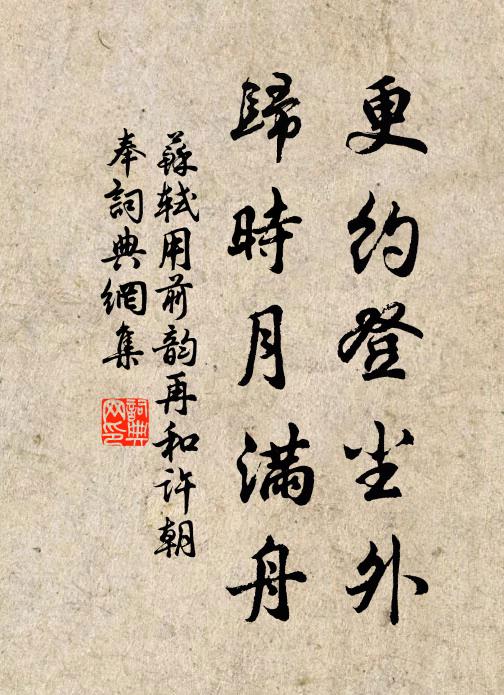 更约登尘外
歸時月满舟
蘇轼用前韵再和许朝
奉詞典網集
詞典
网印